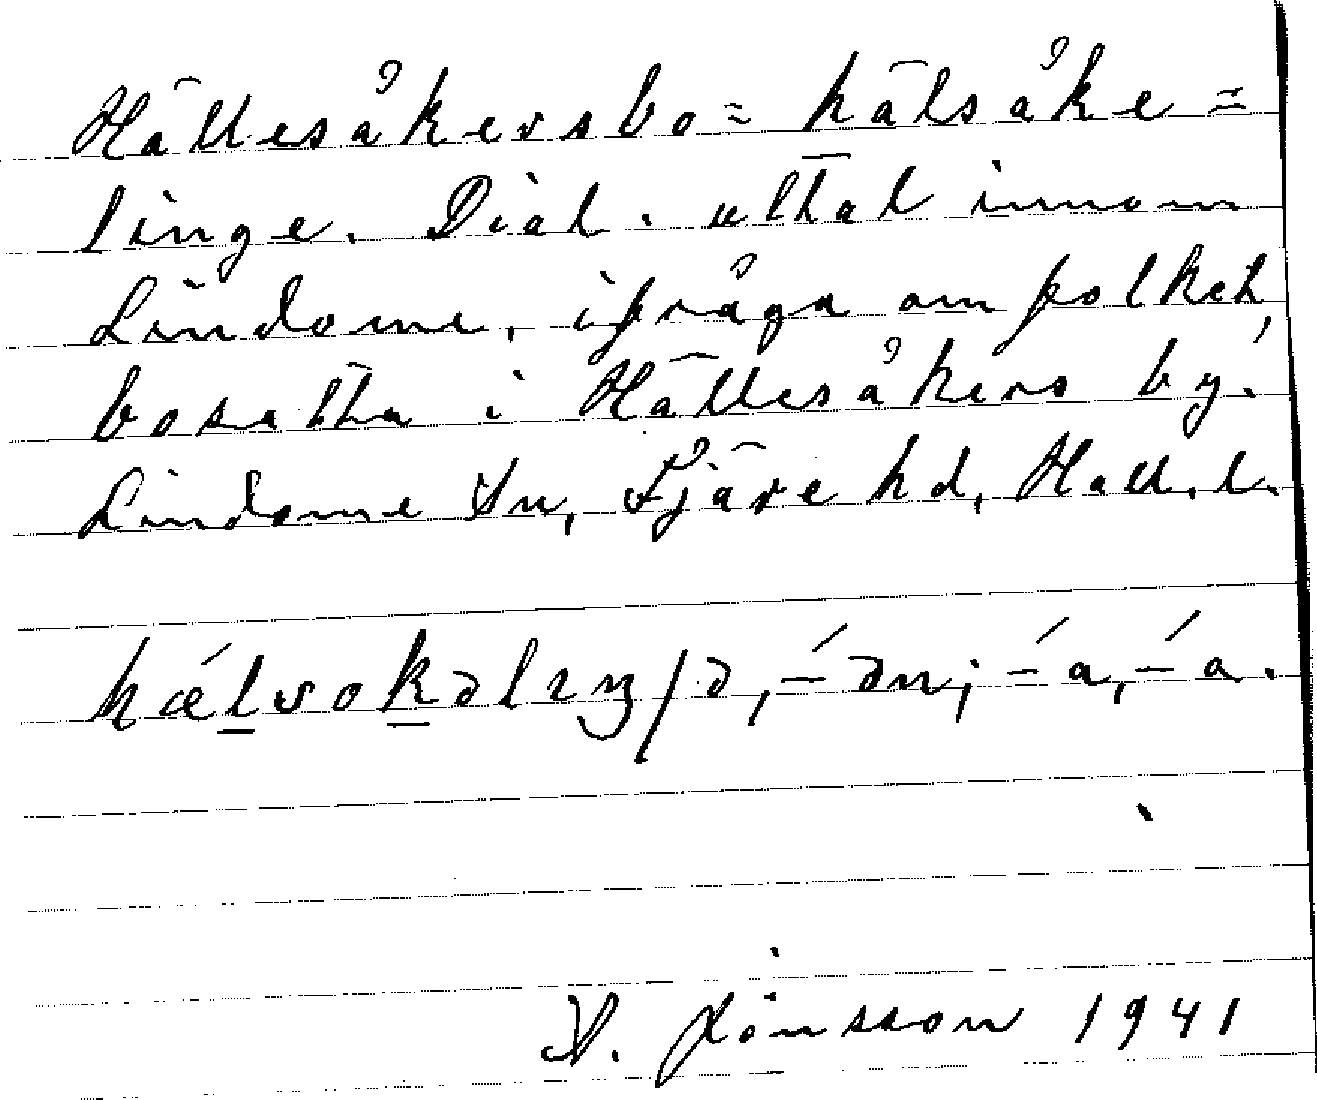 Hällesåkersbo = hälsåke =
linge. Dial. uttal innom
Lindome, ifråga om folket,
bosatta i Hällesåkers by.
Lindome Sn, Fjäre hd, Hall. l.
hǽlsokəlıŋ/ə, -́ən; -́a, -́a.
A. Jönsson 1941